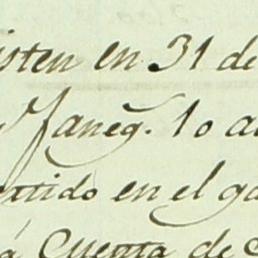 isten en 31 de
y Janeg. 10 a
ertido en el ga
á Cuenta de